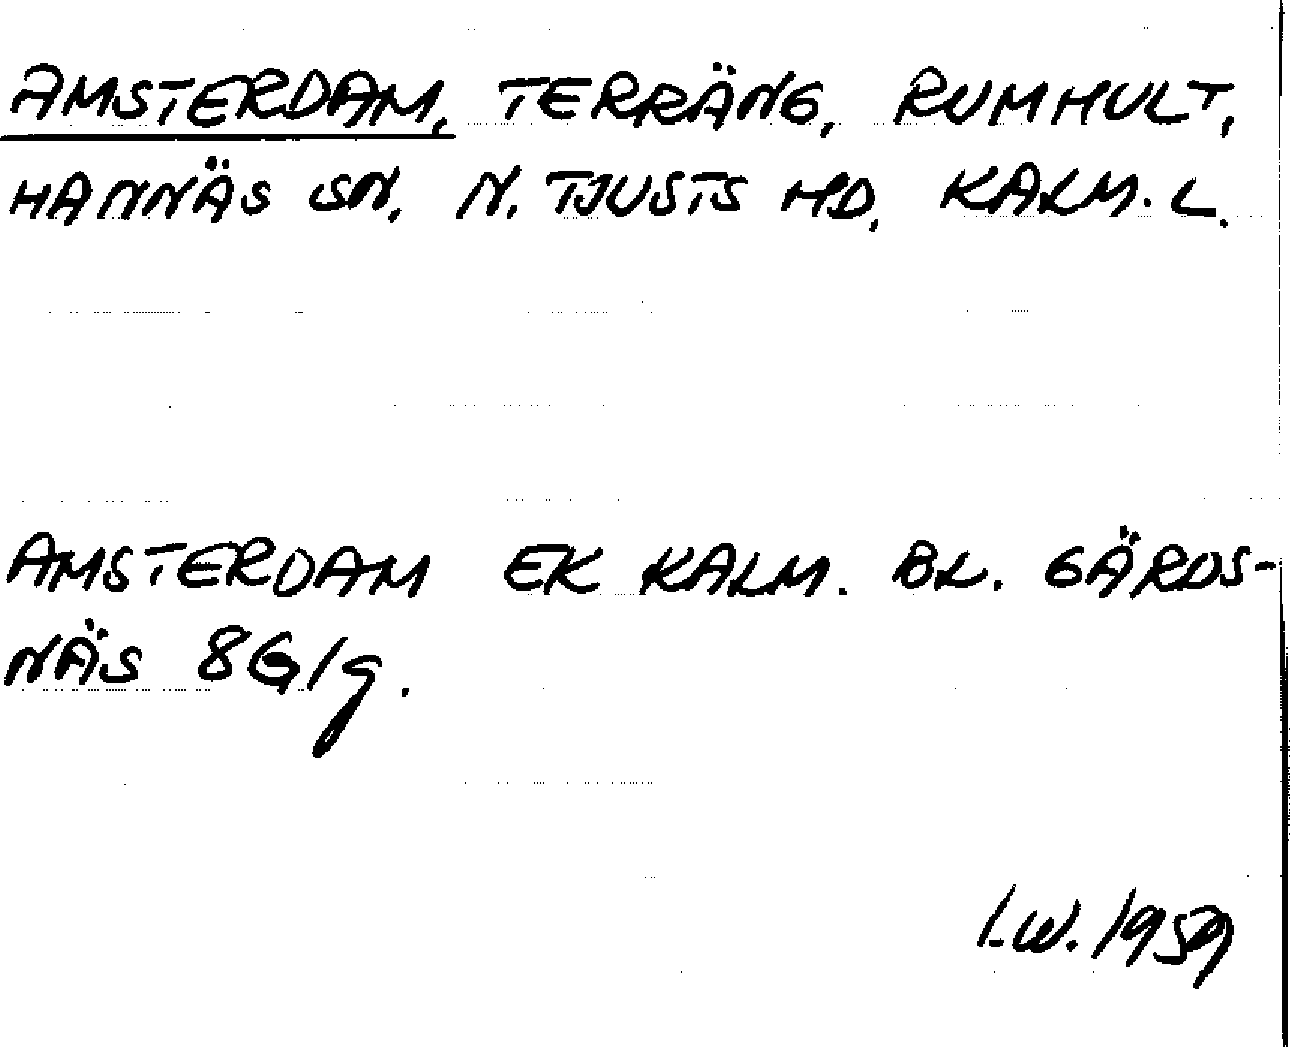 AMSTERDAM, TERRÄNG, RUMHULT,
HANNÄS SN, N. TJUSTS HD, KALM. L.
AMSTERDAM EK KALM. BL. GÄRDS-
NÄS 8G/g.
I.W. 1959